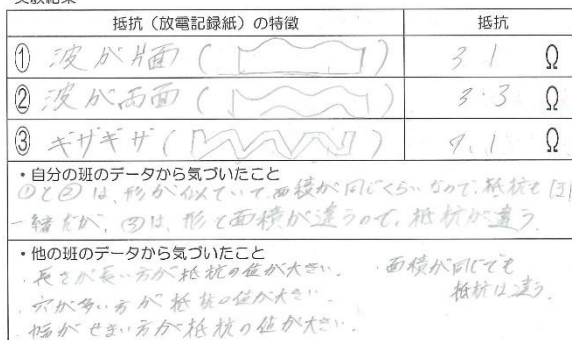 抵抗（放電記録紙）の特徴 抵抗
① 波が片面 ( ) 3.1 Ω
② 波が両面 ( ) 3.3 Ω
③ ギザギザ ( ) 9.1 Ω
・自分の班のデータから気づいたこと
①と②は、形が似ていて面積が同じくらいなので、抵抗も ほ
一緒だが、③は、形と面積が違うので、抵抗が違う
・他の班のデータから気づいたこと
・長さが長い方が抵抗の値が大きい。 ・面積が同じでも
・穴が多い方が抵抗の値が大きい。 抵抗は違う。
・幅がせまい方が抵抗の値が大きい。